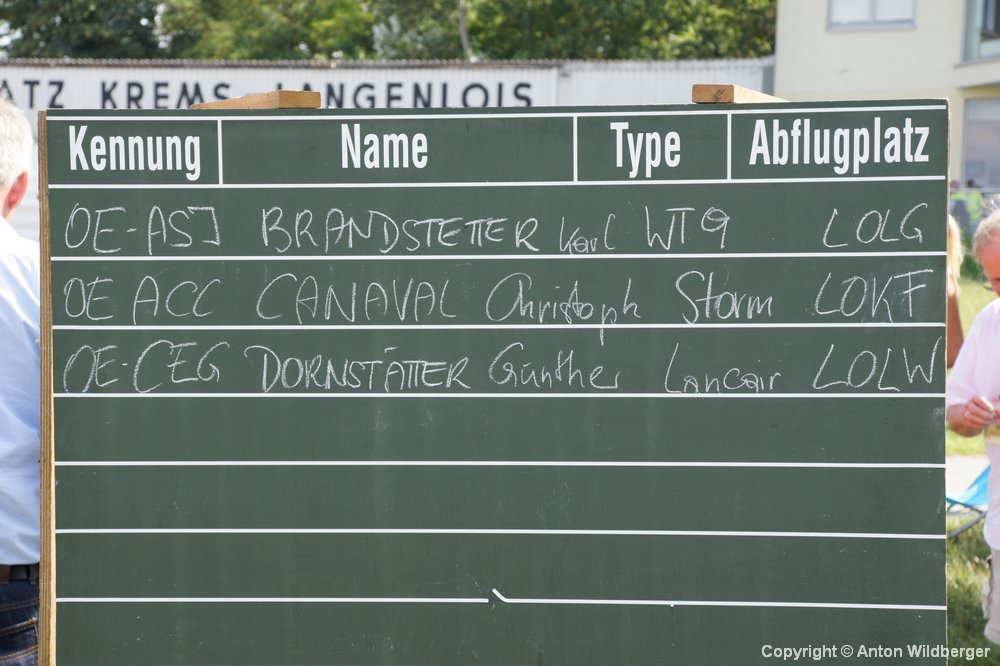 ATZ KREMS LANGENLOIS
Kennung Name Type Abflugplatz
OE-ASJ BRANDSTETTER Karl WT9 LOLG
OE ACC CANAVAL Christoph Storm LOKF
OE-CEG DORNSTÄTTER Günther Lancair LOLW
Copyright © Anton Wildberger